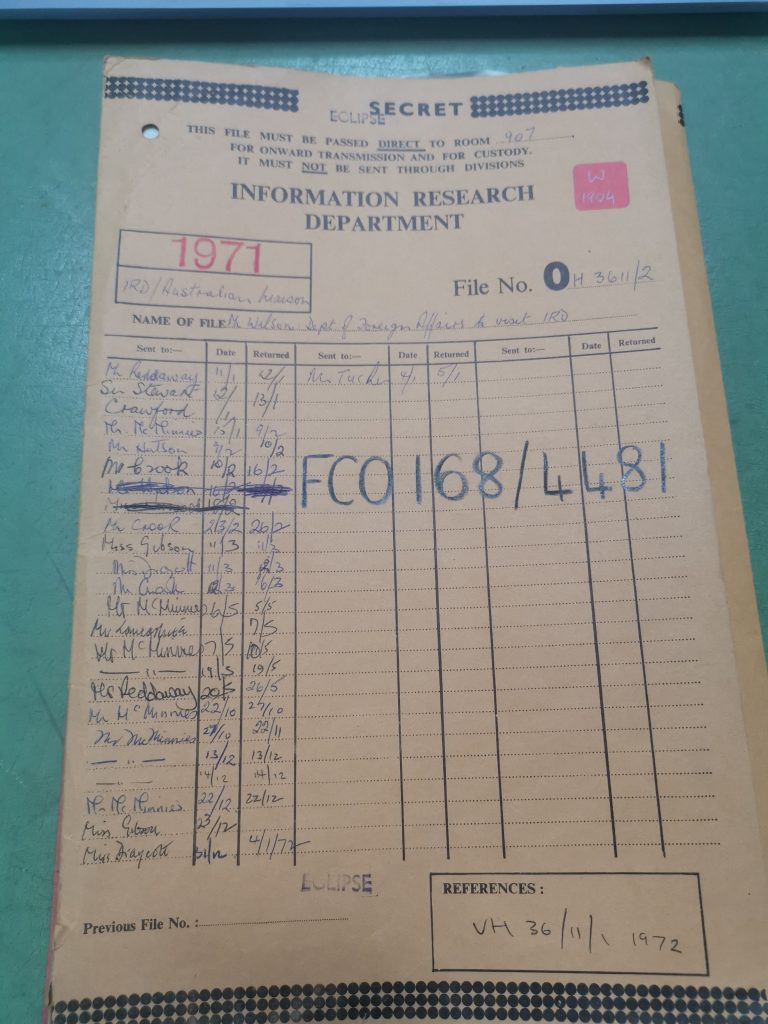 SECRET
ECLIPSE
THIS FILE MUST BE PASSED DIRECT TO ROOM 907
FOR ONWARD TRANSMISSION AND FOR CUSTODY.
IT MUST NOT BE SENT THROUGH DIVISIONS
W
1904
INFORMATION RESEARCH
DEPARTMENT
1971
IRD/Australian liaison
File No. OH 3611/2
NAME OF FILE Mr Wilson Dept of Foreign Affairs to visit IRD
Sent to:— Date Returned Sent to:— Date Returned Sent to:— Date Returned
Mr Reddaway 11/1 12/1 Mr Tucker 4/1 5/1
Sir Stewart 13/1
Crawford
Mr McMinnies 9/2
9/2 10/2
Mr Crook 10/2 16/2
FCO 168/4481
Mr Crook 2/3/2 26/2
Miss Gibson 11/3
11/3
Mr McMinnies 5/5
7/5
Mr McMinnies 7/5
— " — 19/5 19/5
Mr Reddaway 20/5 26/5
Mr McMinnies 22/10 27/10
Mr McMinnies 27/10 22/11
— " — 13/12 13/12
— " — 14/12 14/12
Mr McMinnies 22/12 22/12
Miss Gibson 23/12
Miss Draycott 31/12 4/1/72
ECLIPSE
Previous File No. :
REFERENCES :
VH 36/11/1 1972